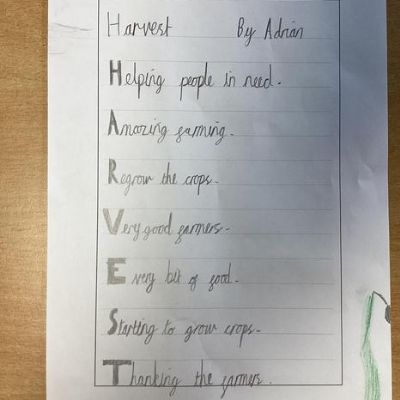 Harvest By Adrian
Helping people in need.
Amazing farming.
Regrow the crops.
Very good farmers.
Every bit of food.
Starting to grow crops.
Thanking the farmers.